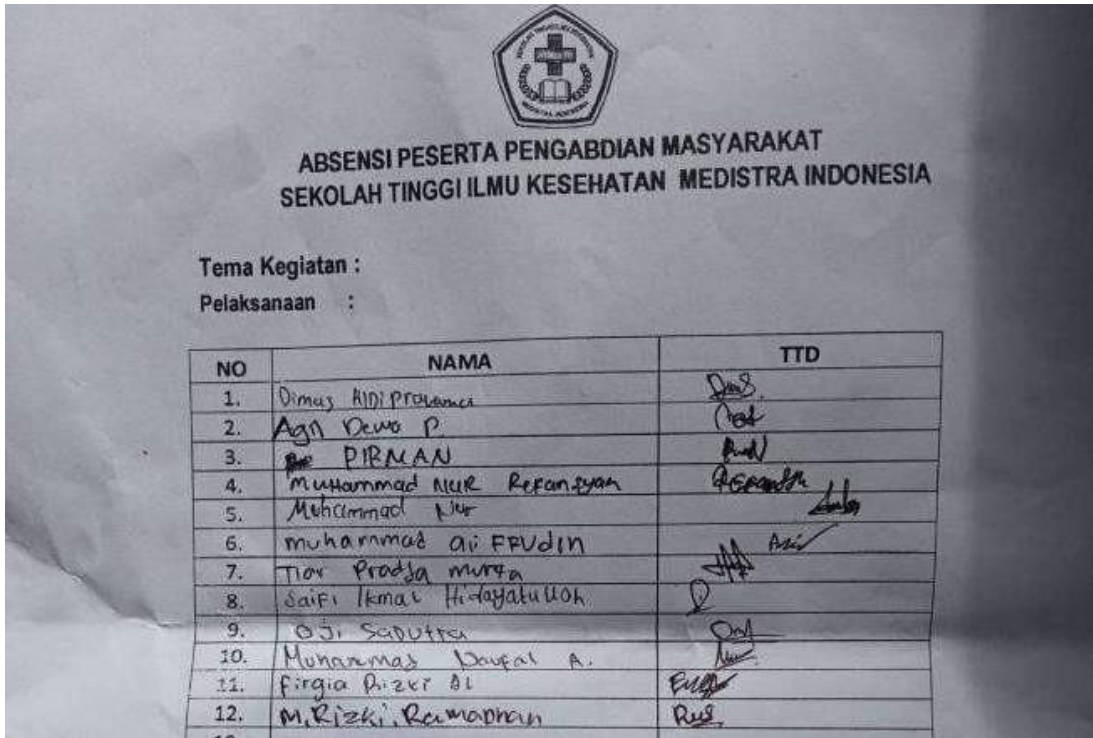 ABSENSI PESERTA PENGABDIAN MASYARAKAT
SEKOLAH TINGGI ILMU KESEHATAN MEDISTRA INDONESIA
Tema Kegiatan :
Pelaksanaan :
NO NAMA TTD
1. Dimas
2. Agn Dewo P.
3. PIRMAN
4. Muhammad NUR Refansyah
5. Muhammad Nur
6. muhammad
7. Tior Pradja
8. Saifi Ikmal Hidayatulloh
9. Oji Saputra
10. Muhammad Naufal A.
11. Firgia Rizki Al
12. M. Rizki. Ramadhan